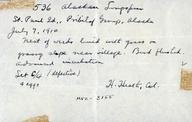 536 Alaskan Longspur
St. Paul Id., Pribilof Group, Alaska
July 7, 1910
Nest of weeds lined with grass on
grassy slope near village. Bird flushed.
Advanced incubation
Set 6/6 (defective)
H. Heath, Col.